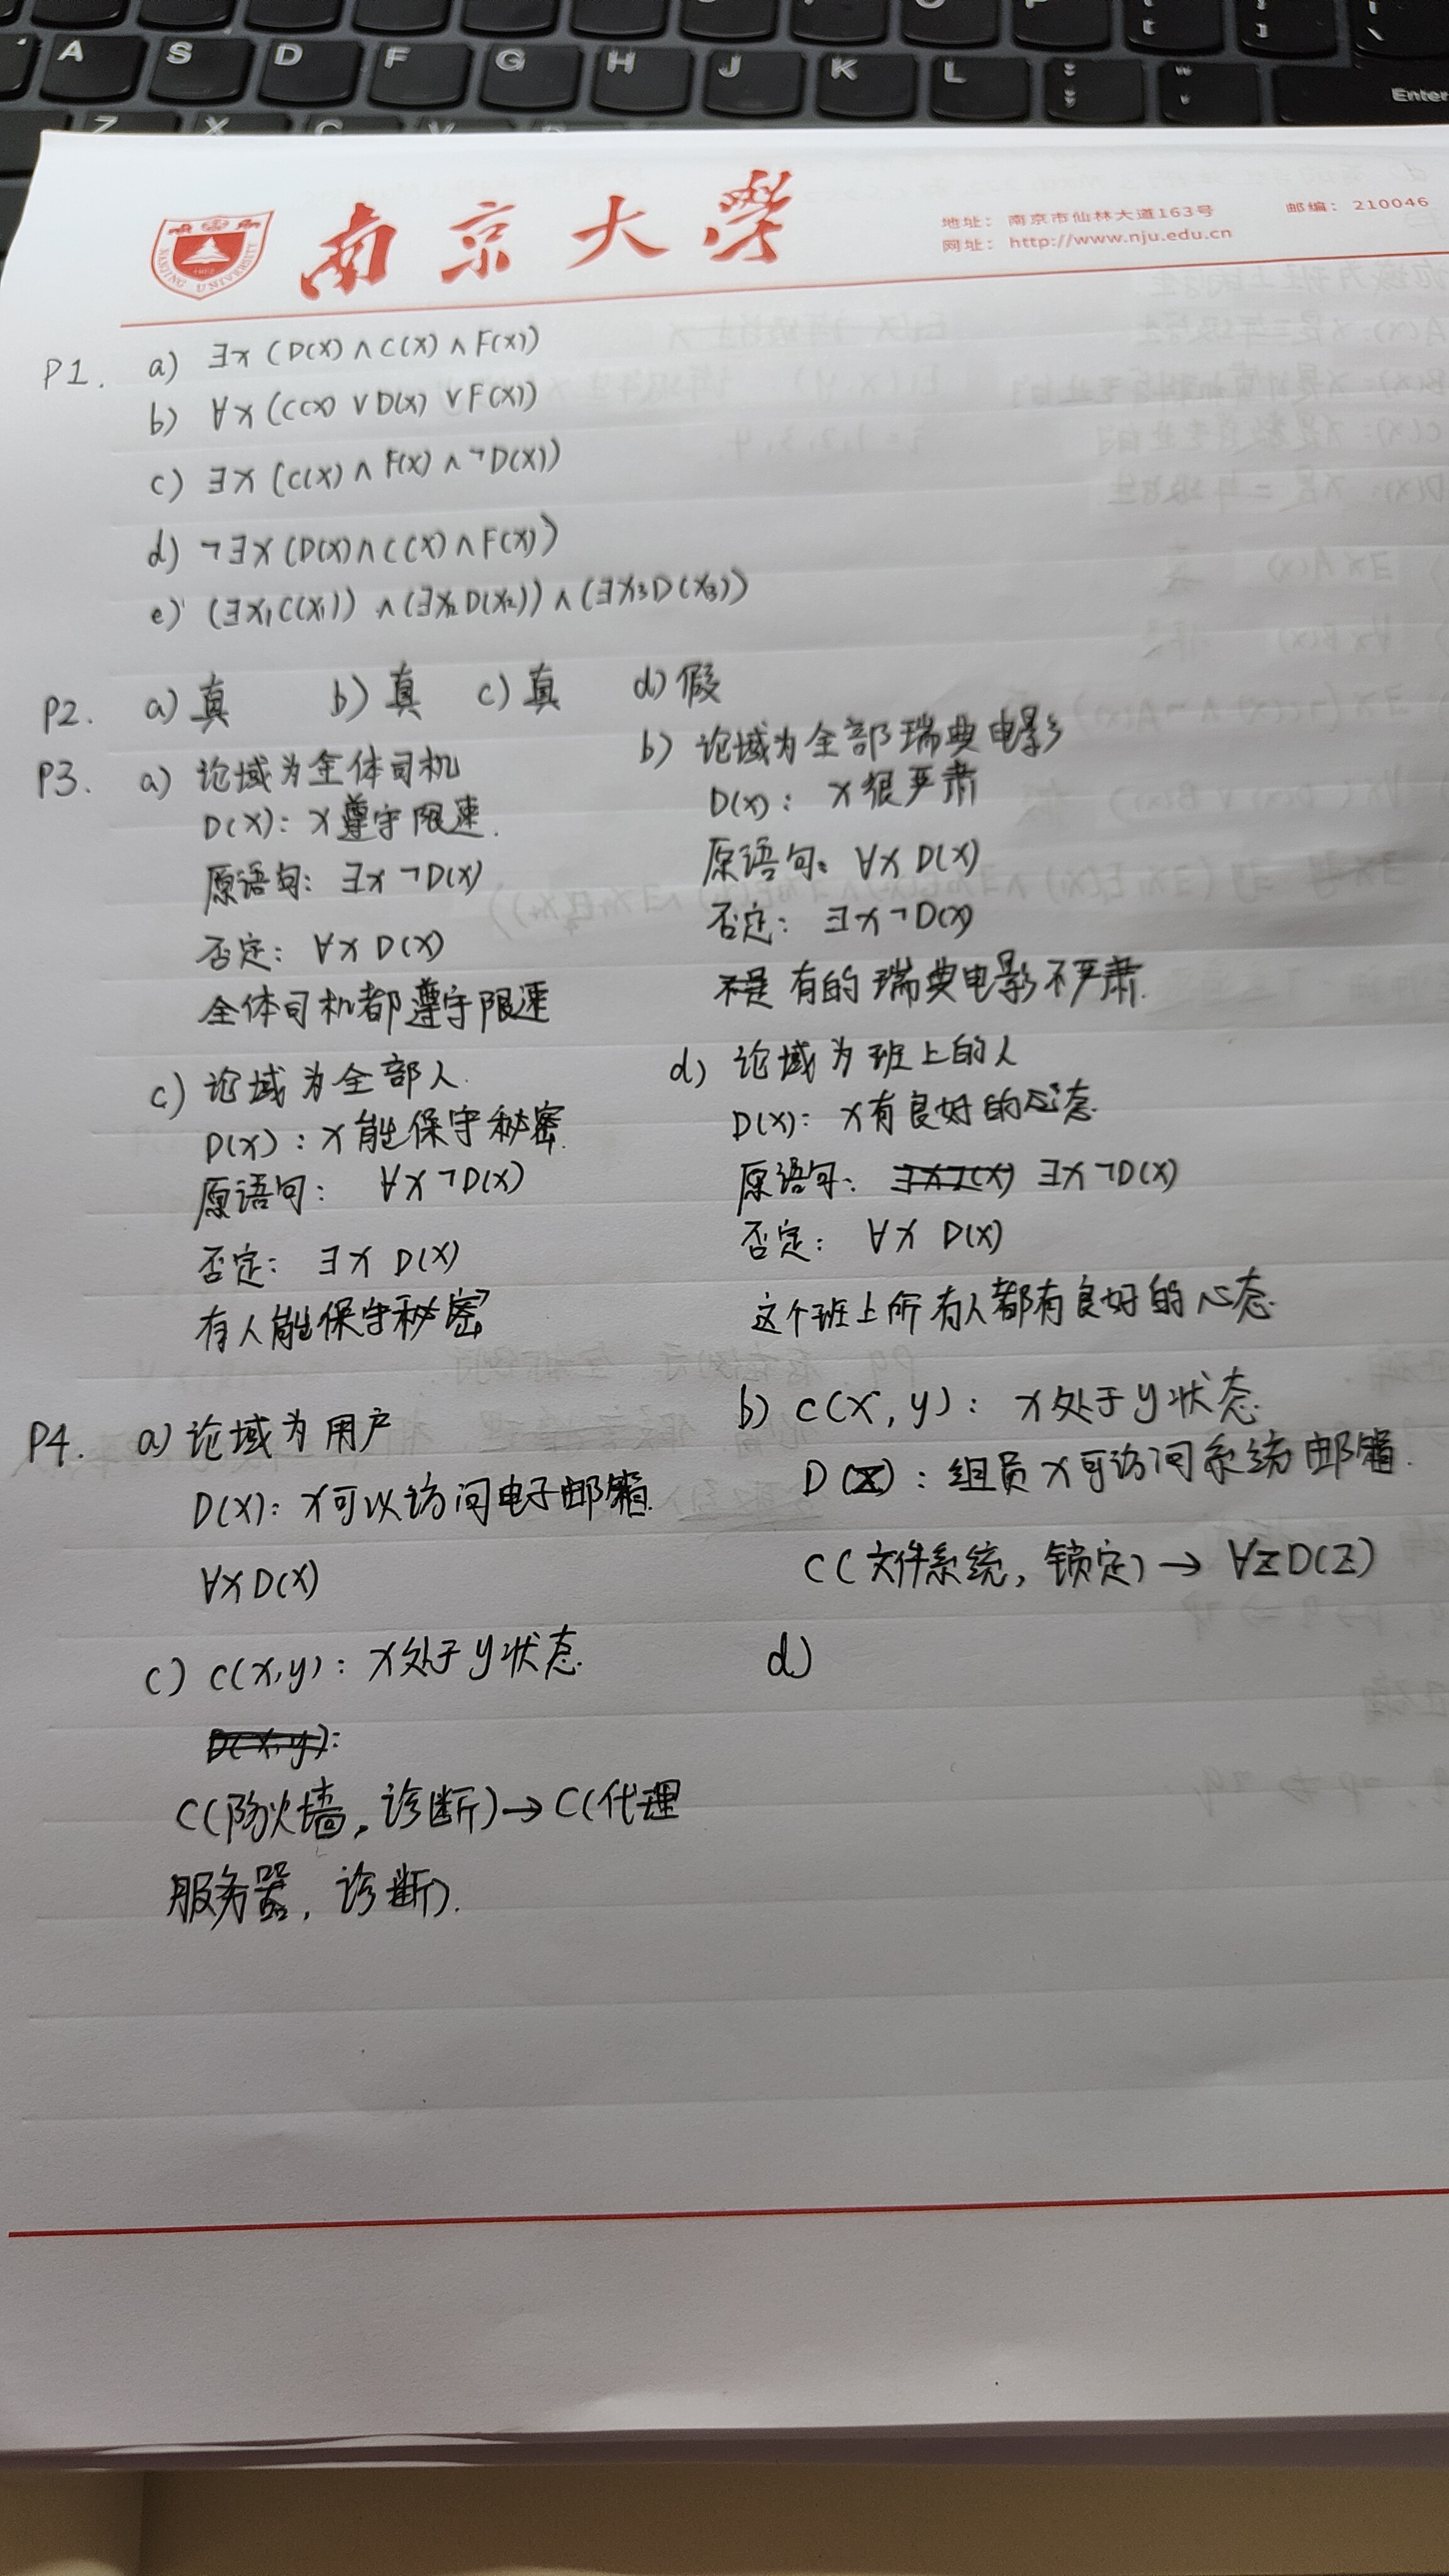 A S D F G H J K L Enter
Z X C V B
南京大學
NANJING UNIVERSITY
1902
地址: 南京市仙林大道163号 邮编: 210046
网址: http://www.nju.edu.cn
P1. a) ∃x (D(x) ∧ C(x) ∧ F(x))
b) ∀x (C(x) ∨ D(x) ∨ F(x))
c) ∃x (C(x) ∧ F(x) ∧ ¬D(x))
d) ¬∃x (D(x) ∧ C(x) ∧ F(x))
e) (∃x₁C(x₁)) ∧ (∃x₂D(x₂)) ∧ (∃x₃D(x₃))
P2. a) 真 b) 真 c) 真 d) 假
P3. a) 论域为全体司机
D(x): x遵守限速.
原语句: ∃x ¬D(x)
否定: ∀x D(x)
全体司机都遵守限速
b) 论域为全部瑞典电影
D(x): x很严肃
原语句: ∀x D(x)
否定: ∃x ¬D(x)
不是 有的瑞典电影不严肃.
c) 论域为全部人.
D(x): x能保守秘密.
原语句: ∀x ¬D(x)
否定: ∃x D(x)
有人能保守秘密
d) 论域为班上的人
D(x): x有良好的心态.
原语句: ∃x ¬D(x)
否定: ∀x D(x)
这个班上所有人都有良好的心态.
P4. a) 论域为用户
D(x): x可以访问电子邮箱.
∀x D(x)
b) C(x, y): x处于y状态.
D(z): 组员x可访问系统邮箱.
C(文件系统, 锁定) → ∀z D(z)
c) C(x,y): x处于y状态.
D(x,y):
C(防火墙, 诊断) → C(代理
服务器, 诊断).
d)